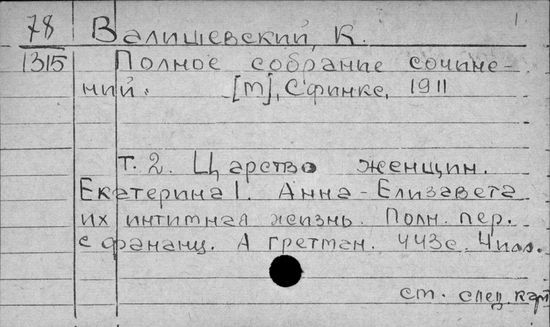 78 Валишевский, К. 1
1315 Полное собрание сочине-
ний. [М], Сфинкс, 1911
т. 2. Царство женщин.
Екатерина I. Анна - Елизавета
их интимная жизнь. Полн. пер.
с франанц. А Гретман. 443с. 4 илл.
ст. след. карт